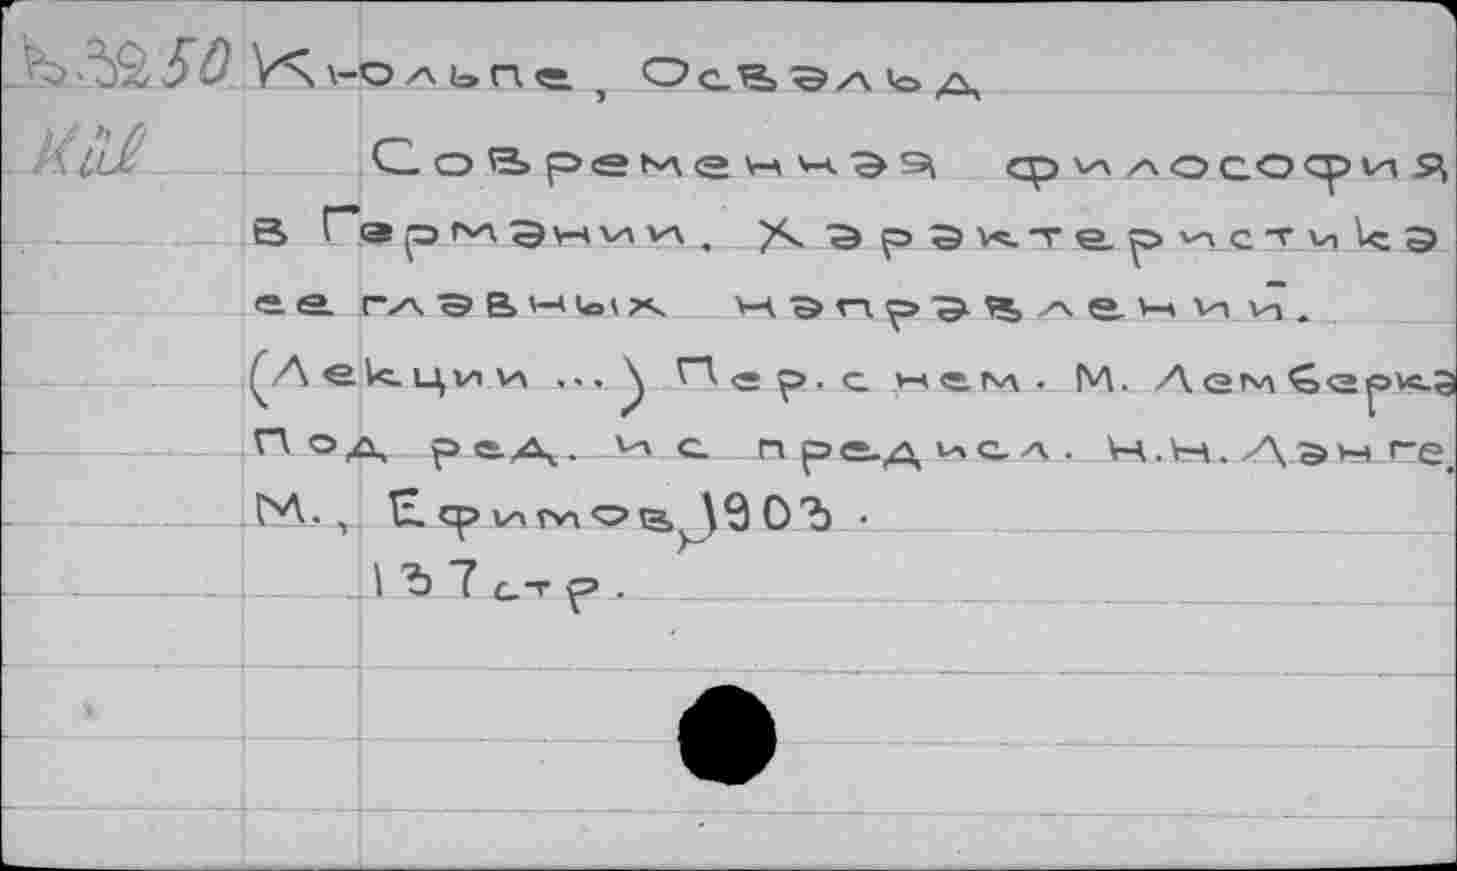 Кюльпе, Освальд
Kül Современная философия
в Германии. Характеристика
ее главных направлений.
(Лекции ...) Пер. с нем. М. Лемберка
Под ред. и с предисл. Н.Н. Ланге.
М., Ефимов, 1903.
137 стр.